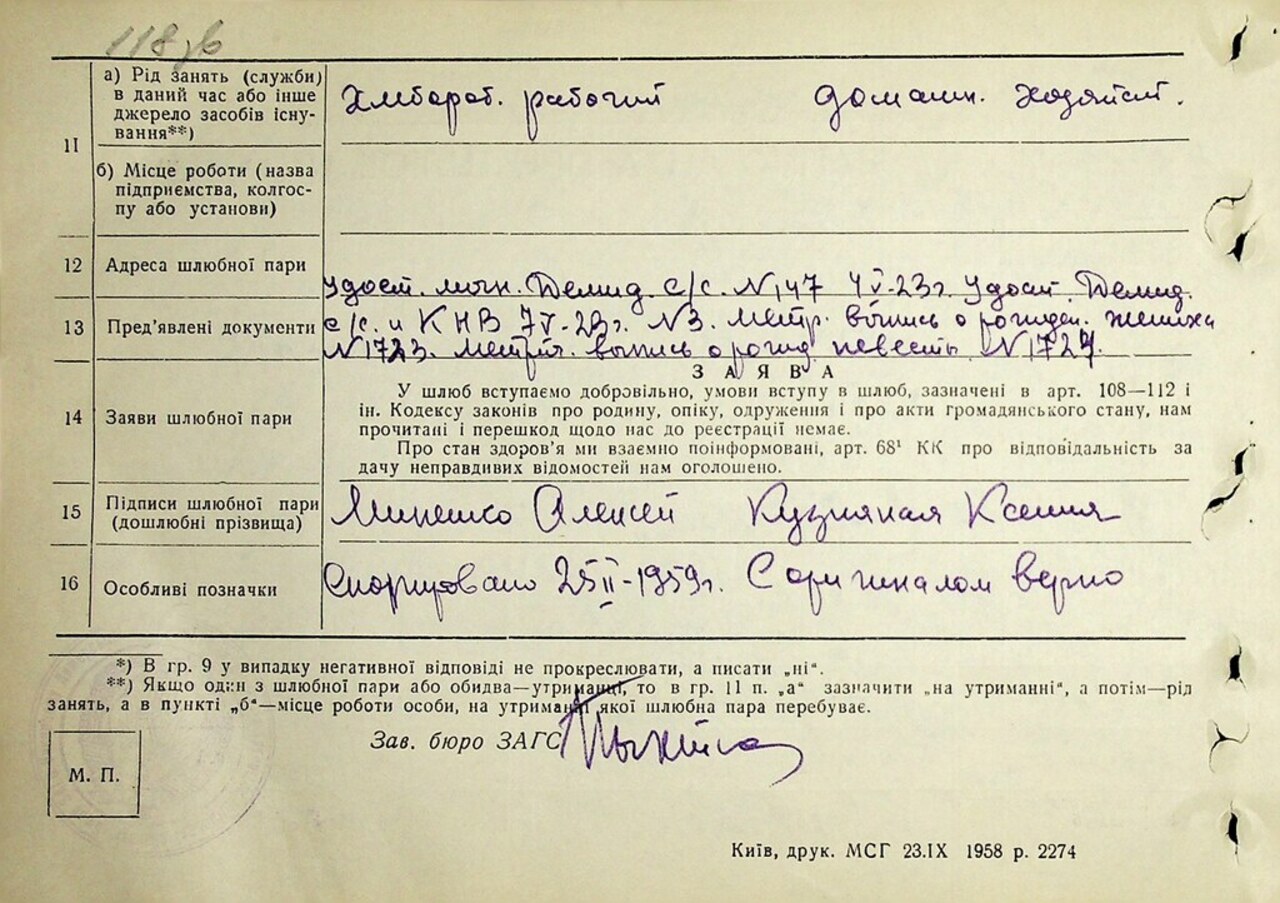 118 зв
11
а) Рід занять (служби)
в даний час або інше
джерело засобів існу-
вання**)
Хлбораб. рабочий домашн. хозяйст.
б) Місце роботи (назва
підприємства, колгос-
пу або установи)
12 Адреса шлюбної пари
Удост. личн. Демид. с/с. N147 4 V-23г. Удост. Демид.
13 Пред’явлені документи
с/с. и КНВ 7 V-23г. N3. Метр. выпись о рожден. жениха
N1723. Метрич. выпись о рожд невесты N1724.
14 Заяви шлюбної пари
ЗАЯВА
У шлюб вступаємо добровільно, умови вступу в шлюб, зазначені в арт. 108—112 і
ін. Кодексу законів про родину, опіку, одруження і про акти громадянського стану, нам
прочитані і перешкод щодо нас до реєстрації немає.
Про стан здоров’я ми взаємно поінформовані, арт. 68¹ КК про відповідальність за
дачу неправдивих відомостей нам оголошено.
15 Підписи шлюбної пари
(дошлюбні прізвища)
Минешко Алексей Ксения
16 Особливі позначки
Скопировано 25 II-1959г. С оригиналом верно
*) В гр. 9 у випадку негативної відповіді не прокреслювати, а писати „ні“.
**) Якщо один з шлюбної пари або обидва—утриманці, то в гр. 11 п. „а“ зазначити „на утриманні“, а потім—рід
занять, а в пункті „б“—місце роботи особи, на утриманні якої шлюбна пара перебуває.
Зав. бюро ЗАГС
М. П.
Київ, друк. МСГ 23.IX 1958 р. 2274